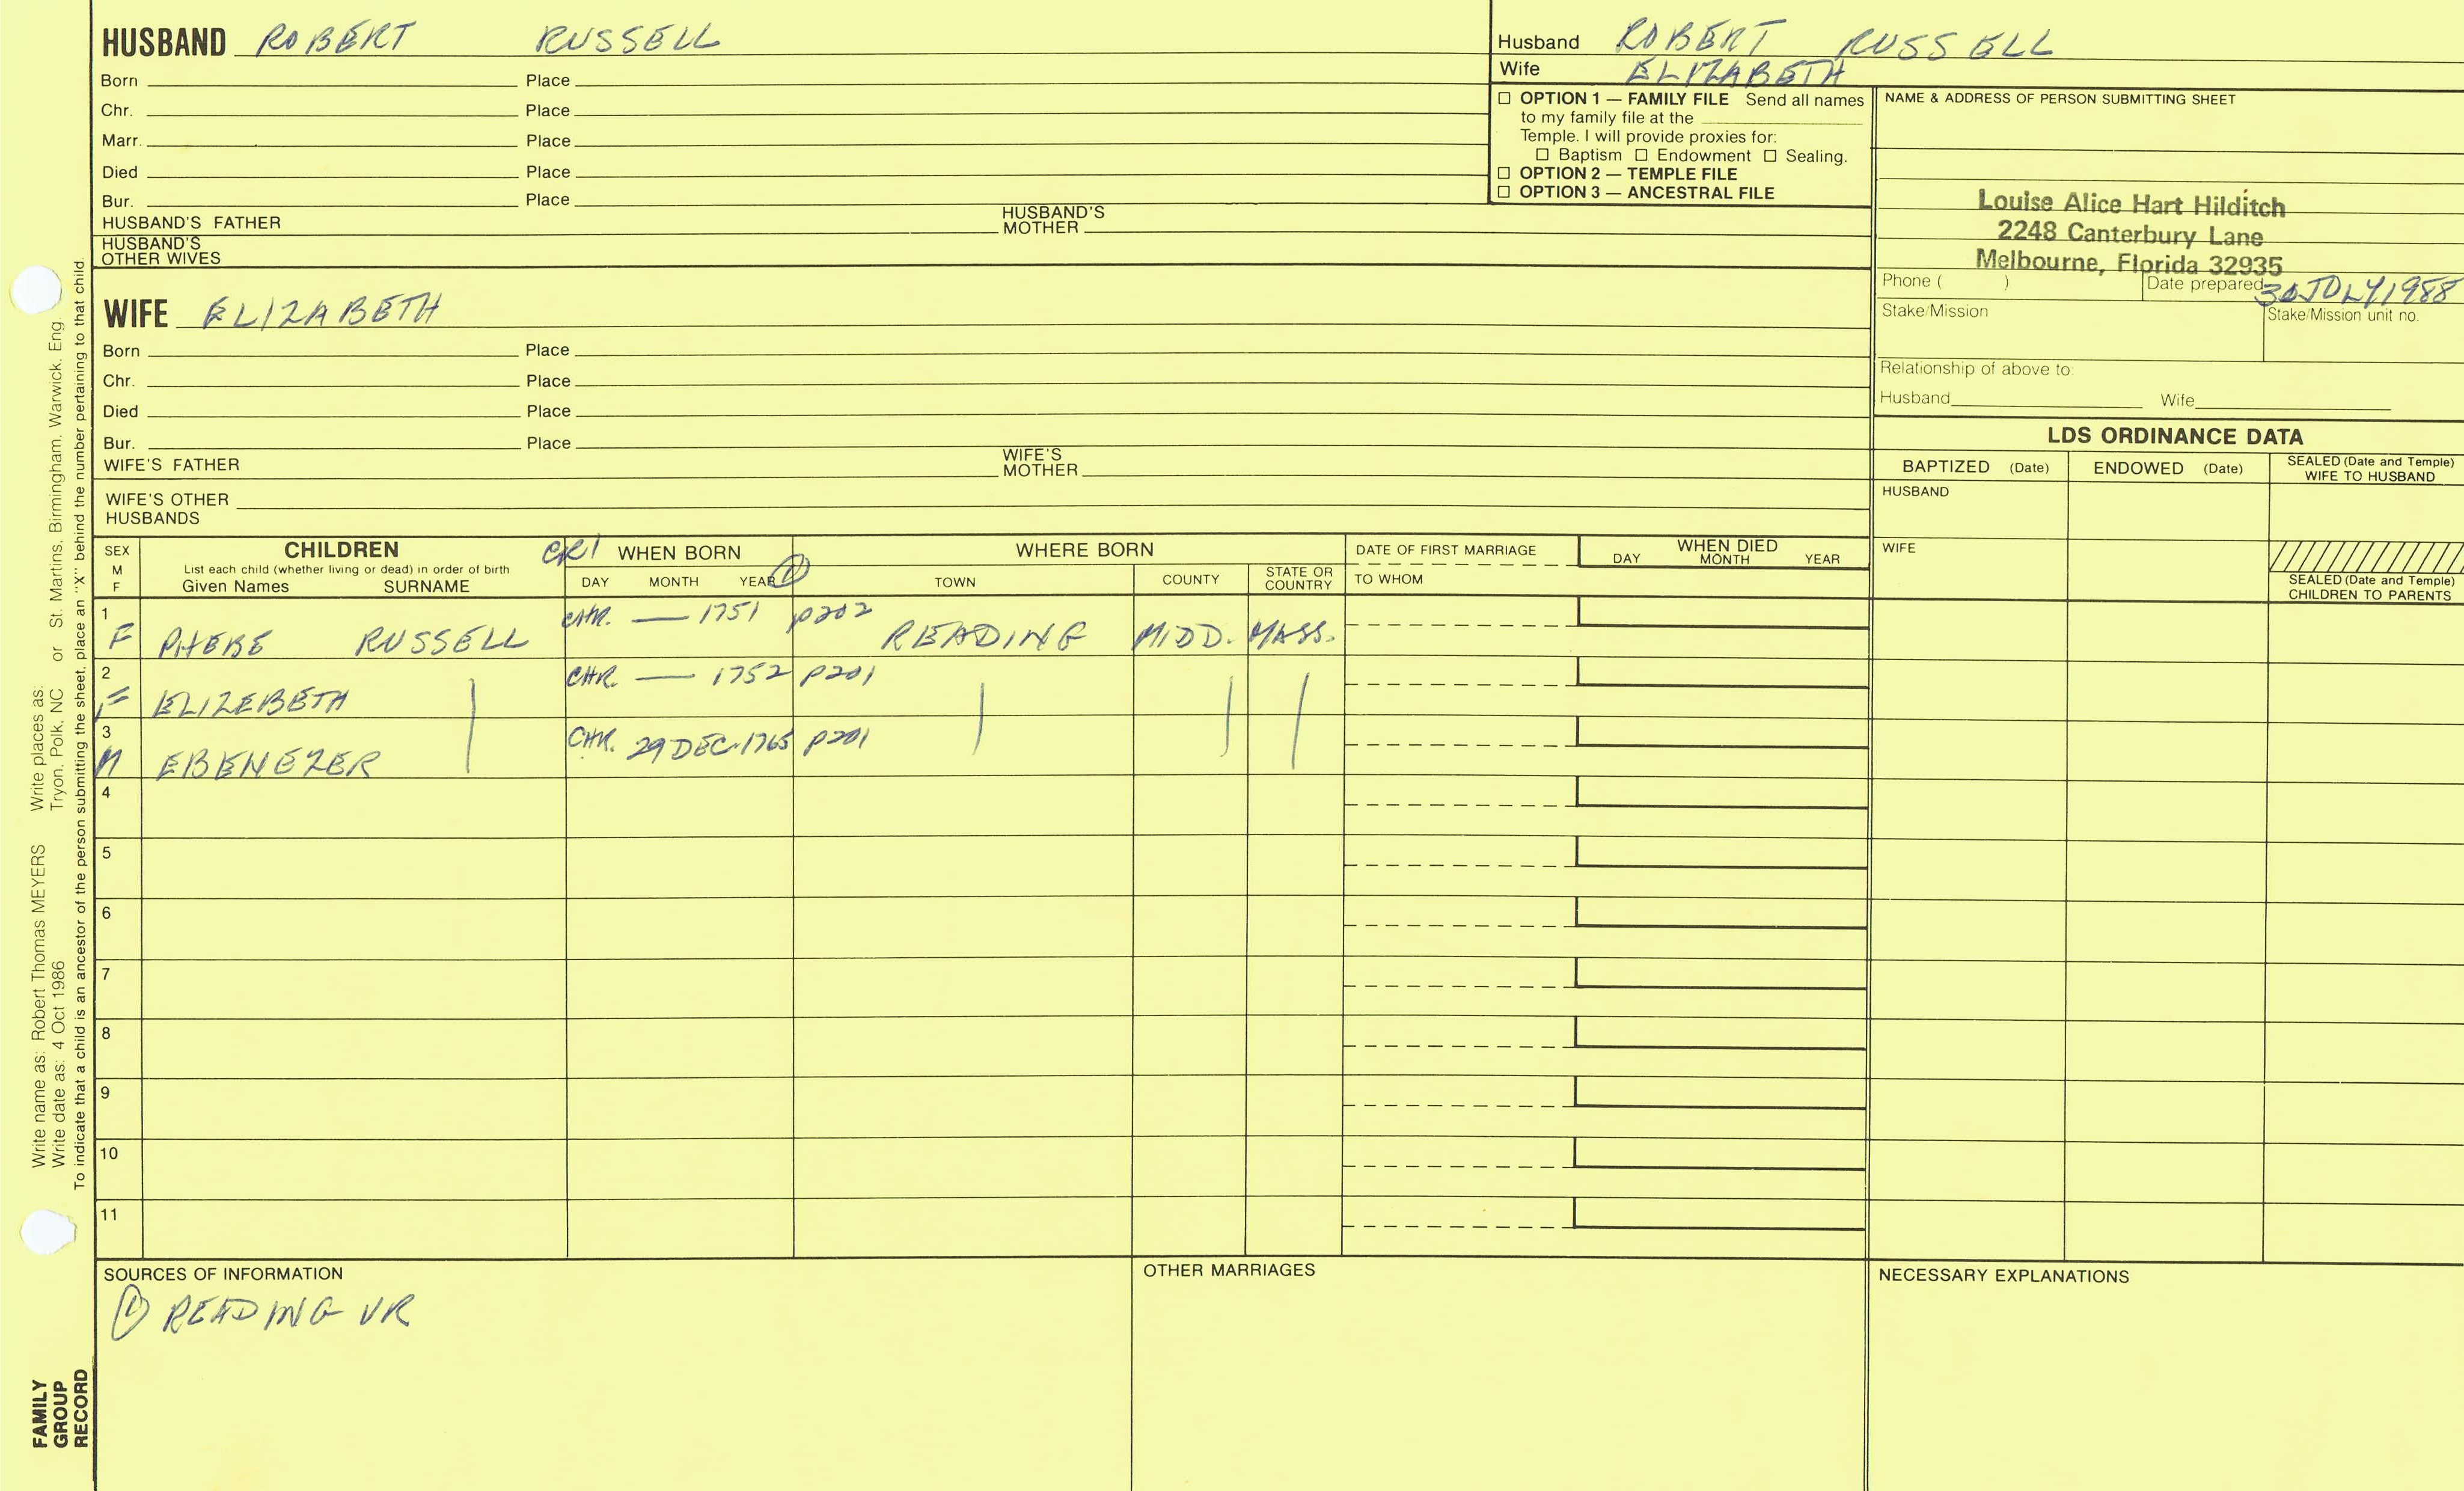 HUSBAND ROBERT RUSSELL
Born Place
Chr. Place
Marr. Place
Died Place
Bur. Place
HUSBAND'S FATHER HUSBAND'S MOTHER
HUSBAND'S OTHER WIVES
WIFE ELIZABETH
Born Place
Chr. Place
Died Place
Bur. Place
WIFE'S FATHER WIFE'S MOTHER
WIFE'S OTHER
HUSBANDS
Husband ROBERT RUSSELL
Wife ELIZABETH
☐ OPTION 1 — FAMILY FILE Send all names
to my family file at the
Temple. I will provide proxies for:
☐ Baptism ☐ Endowment ☐ Sealing.
☐ OPTION 2 — TEMPLE FILE
☐ OPTION 3 — ANCESTRAL FILE
NAME & ADDRESS OF PERSON SUBMITTING SHEET
Louise Alice Hart Hilditch
2248 Canterbury Lane
Melbourne, Florida 32935
Phone ( ) Date prepared 30 JULY 1988
Stake/Mission Stake/Mission unit no.
Relationship of above to:
Husband Wife
LDS ORDINANCE DATA
BAPTIZED (Date) ENDOWED (Date) SEALED (Date and Temple) WIFE TO HUSBAND
HUSBAND
WIFE
SEALED (Date and Temple)
CHILDREN TO PARENTS
SEX M F
CHILDREN
List each child (whether living or dead) in order of birth
Given Names SURNAME
CR1 WHEN BORN
DAY MONTH YEAR ①
WHERE BORN
TOWN COUNTY STATE OR COUNTRY
DATE OF FIRST MARRIAGE
TO WHOM
WHEN DIED
DAY MONTH YEAR
1 F PHEBE RUSSELL CHR. — 1751 p202 READING MIDD. MASS.
2 F ELIZEBETH CHR. — 1752 p201
3 M EBENEZER CHR. 29 DEC. 1765 p201
4
5
6
7
8
9
10
11
SOURCES OF INFORMATION
① READING VR
OTHER MARRIAGES
NECESSARY EXPLANATIONS
Write name as: Robert Thomas MEYERS Write places as: or St. Martins, Birmingham, Warwick, Eng.
Write date as: 4 Oct 1986 Tryon, Polk, NC
To indicate that a child is an ancestor of the person submitting the sheet, place an "X" behind the number pertaining to that child.
FAMILY
GROUP
RECORD